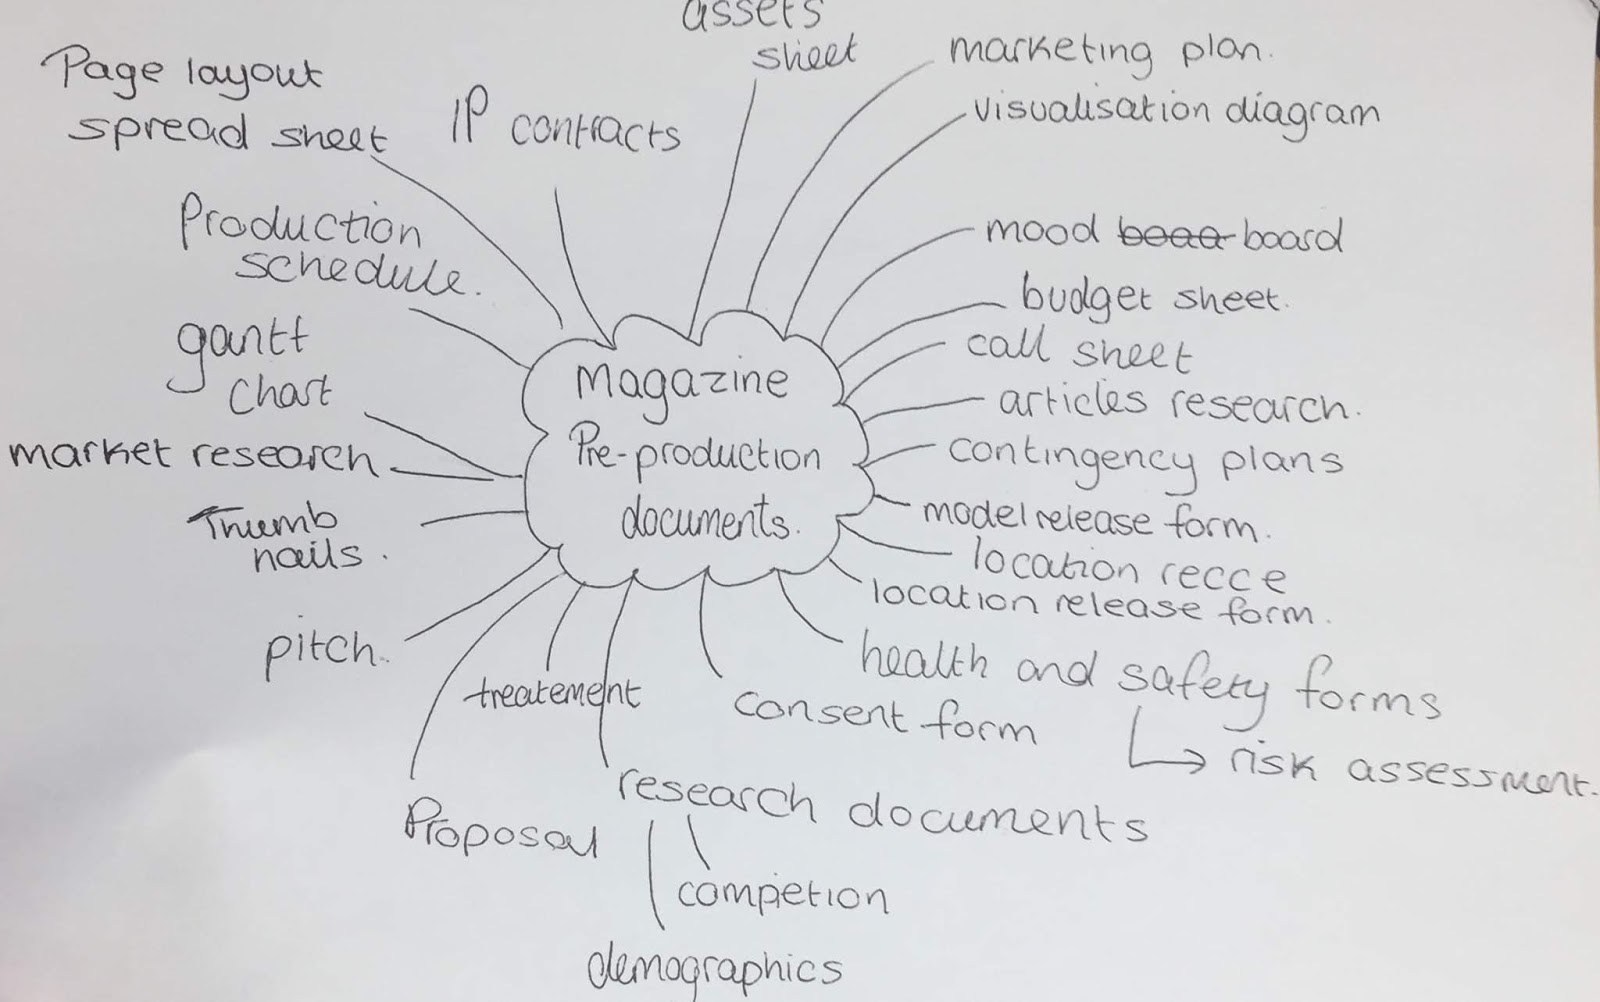 assets
sheet
Page layout
spread sheet
IP contracts
marketing plan.
visualisation diagram
Production
schedule.
mood board
budget sheet.
gantt
chart
call sheet
Magazine
Pre-production
documents.
articles research.
market research
contingency plans
Thumb
nails.
model release form.
location recce
location release form.
pitch.
health and safety forms
risk assessment.
treatement
consent form
Proposal
research documents
competion
demographics